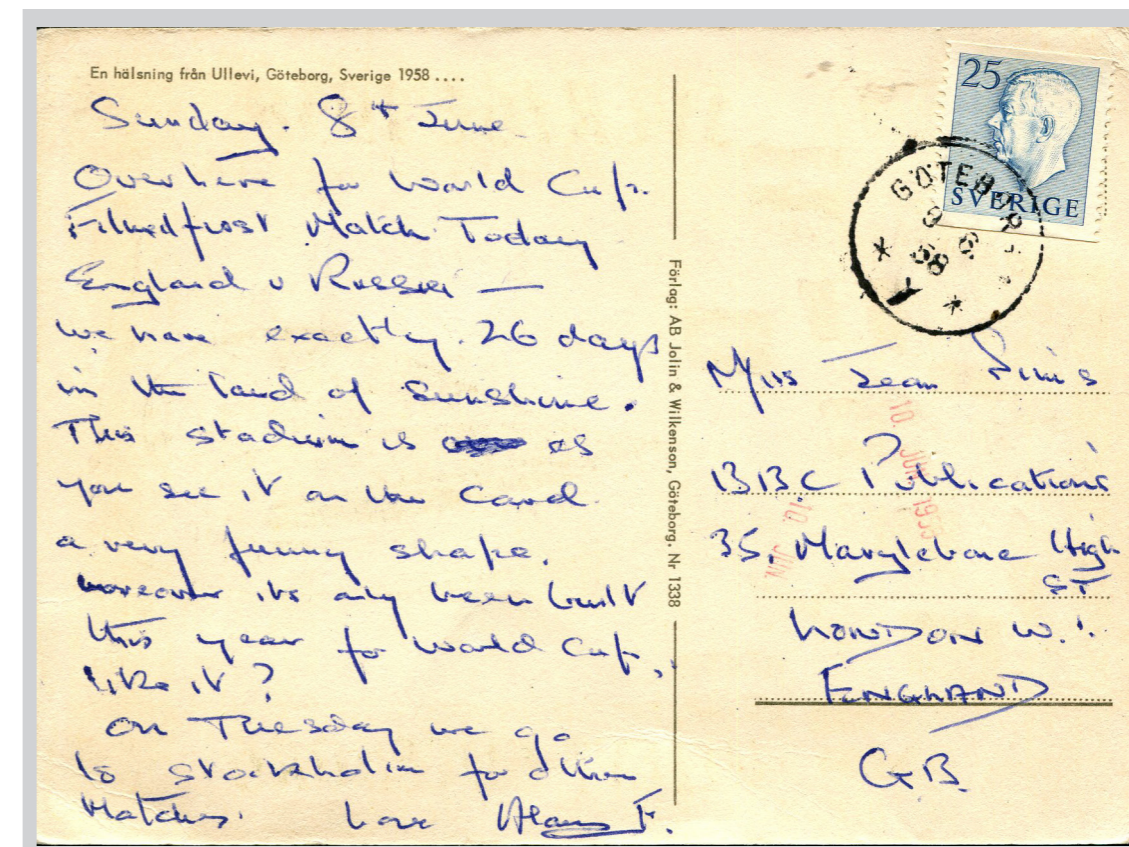 En hälsning från Ullevi, Göteborg, Sverige 1958 ....
Sunday. 8th June
Over here for World Cup.
Filmed first Match Today
England v Russia —
we have exactly 26 days
in the land of sunshine.
This stadium is as
you see it on the Card
a very funny shape,
moreover its only been built
this year for World Cup,
like it?
On Tuesday we go
to Stockholm for other
Matches. Love Alan F.
Förlag: AB Jolin & Wilkenson, Göteborg. Nr 1338
25
SVERIGE
GÖTEBORG
9 6
58
1
Miss Jean Sims
BBC Publications
35, Marylebone High
ST
LONDON W.1.
ENGLAND
G.B.
10. JUN 1958
10. JUN